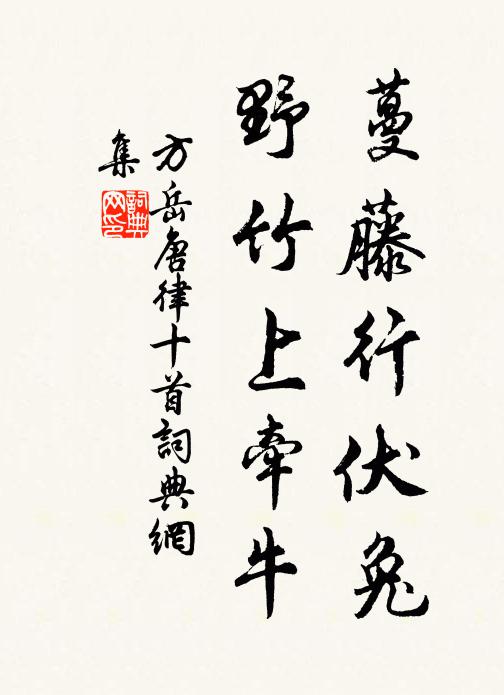 蔓藤行伏兔
野竹上牽牛
方岳唐律十首詞典網
集
詞典
网印